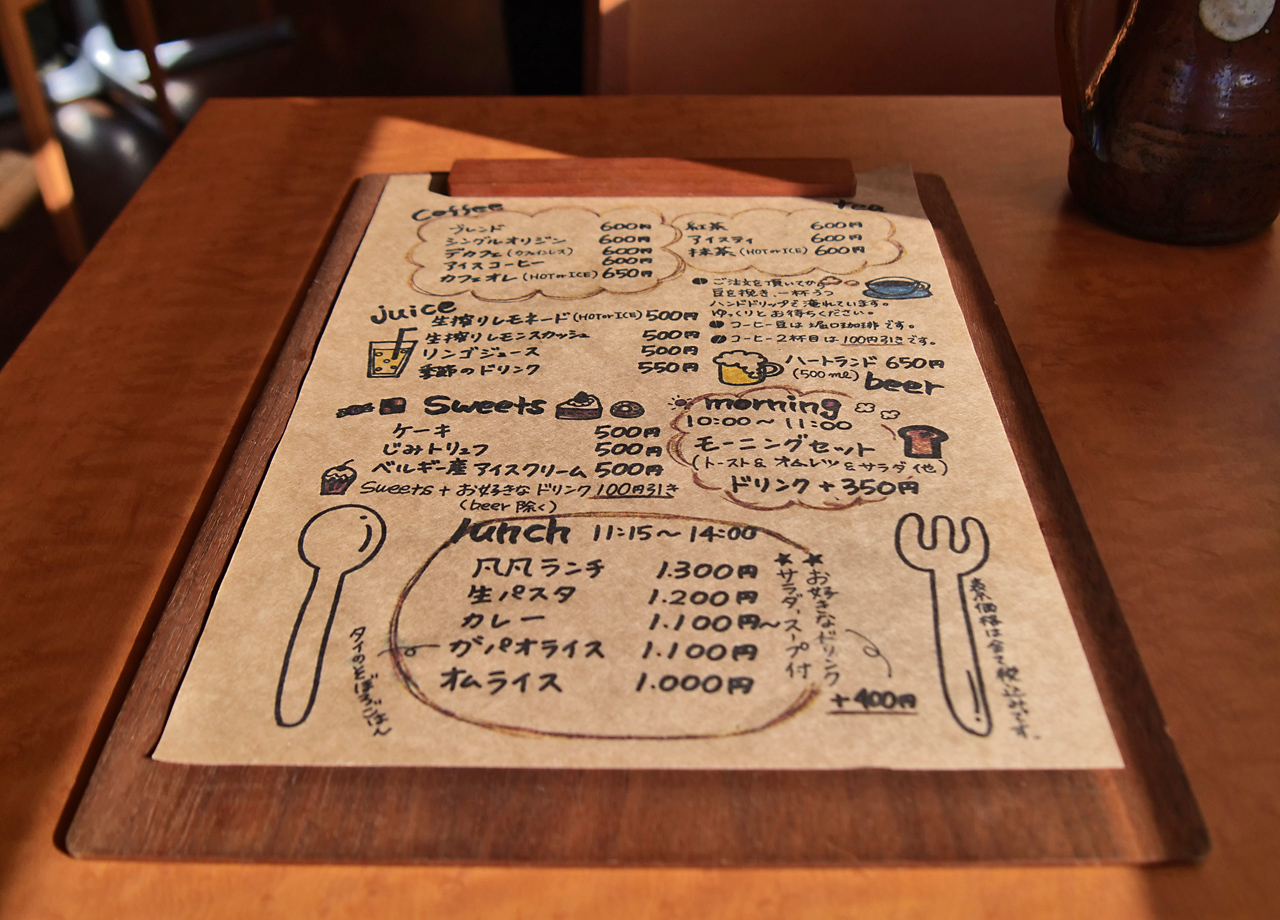 Coffee
ブレンド 600円
シングルオリジン 600円
デカフェ (カフェインレス) 600円
アイスコーヒー 600円
カフェオレ (HOT or ICE) 650円
tea
紅茶 600円
アイスティ 600円
抹茶 (HOT or ICE) 600円
ご注文を頂いてから
豆を挽き、一杯ずつ
ハンドドリップで淹れています。
ゆっくりとお待ちください。
コーヒー豆は堀口珈琲です。
コーヒー2杯目は100円引きです。
juice
生搾りレモネード (HOT or ICE) 500円
生搾りレモンスカッシュ 500円
リンゴジュース 500円
季節のドリンク 550円
ハートランド 650円
(500ml)
beer
Sweets
ケーキ 500円
じみトリュフ 500円
ベルギー産アイスクリーム 500円
Sweets + お好きなドリンク 100円引き
(beer 除く)
morning
10:00〜11:00
モーニングセット
(トースト&オムレツ&サラダ他)
ドリンク +350円
lunch 11:15〜14:00
凡凡ランチ 1.300円
生パスタ 1.200円
カレー 1.100円〜
ガパオライス 1.100円
オムライス 1.000円
★お好きなドリンク
+400円
★サラダ、スープ付
タイのそぼろごはん
表示価格は全て税込みです。